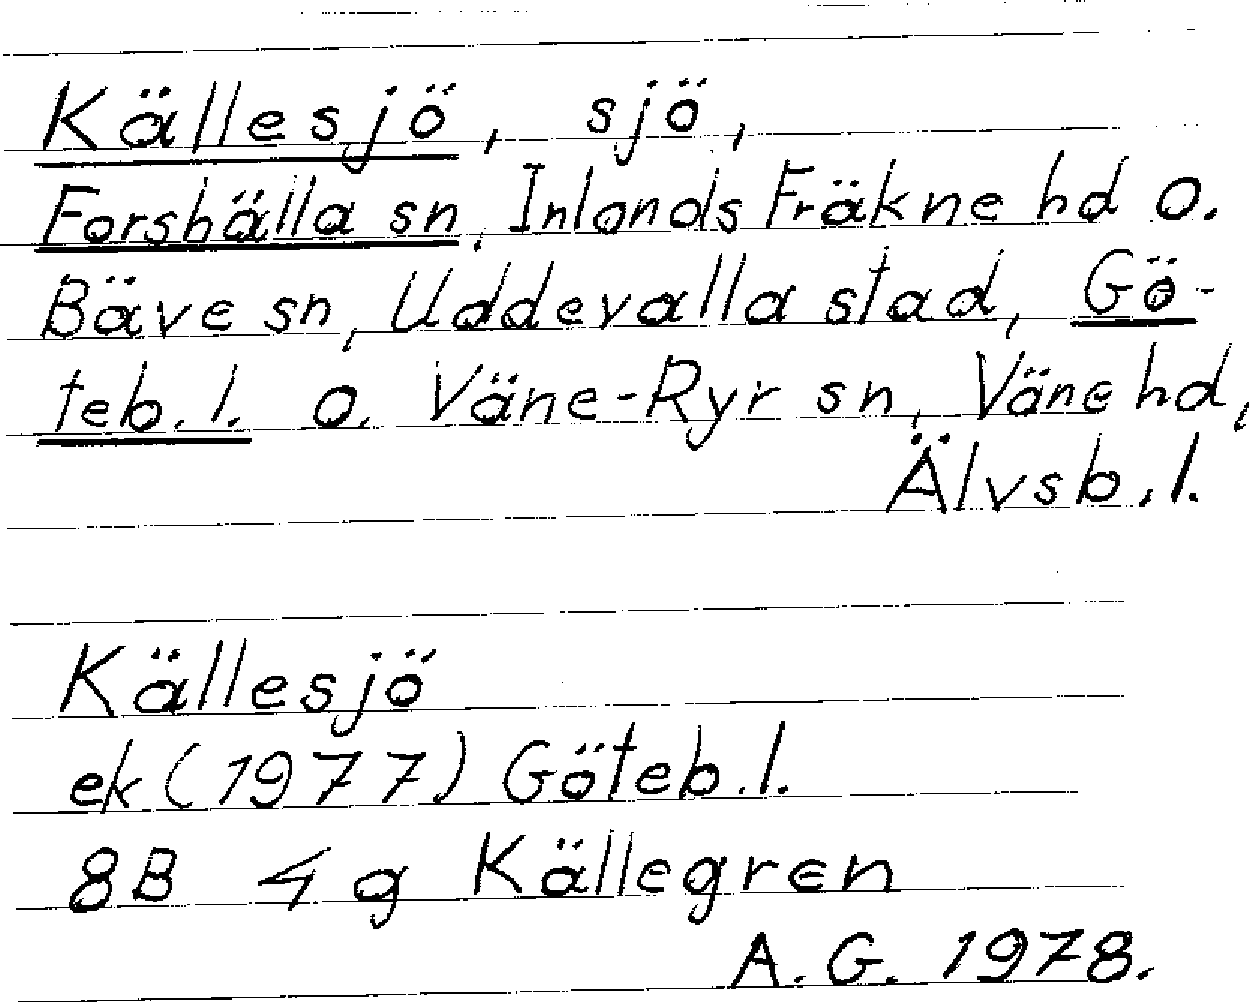 Källesjö, sjö,
Forshälla sn, Inlands Fräkne hd o.
Bäve sn, Uddevalla stad, Gö-
teb. l. o. Väne-Ryr sn, Väne hd,
Älvsb. l.
Källesjö
ek (1977) Göteb. l.
8B 4g Källegren
A. G. 1978.